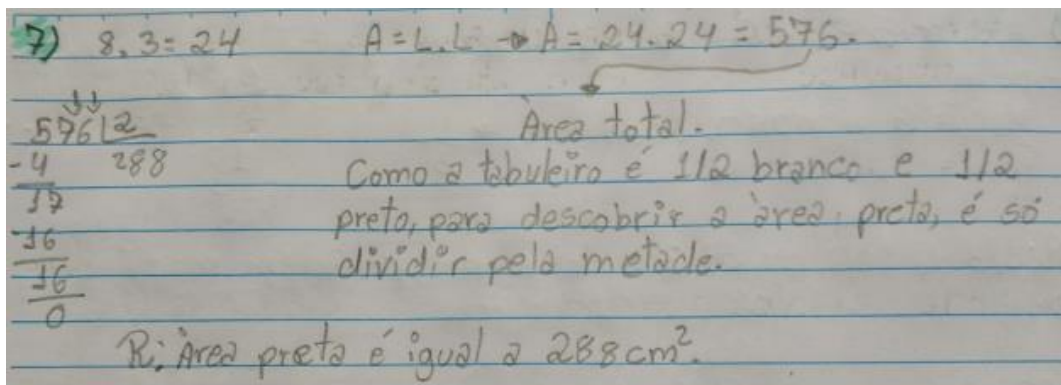 7) 8.3=24 A=L.L → A= 24.24 = 576.
Área total.
576 |2
-4 288
17
-16
16
16
0
Como a tabuleiro é 1/2 branco e 1/2
preto, para descobrir a área preta, é só
dividir pela metade.
R: Área preta é igual a 288 cm².